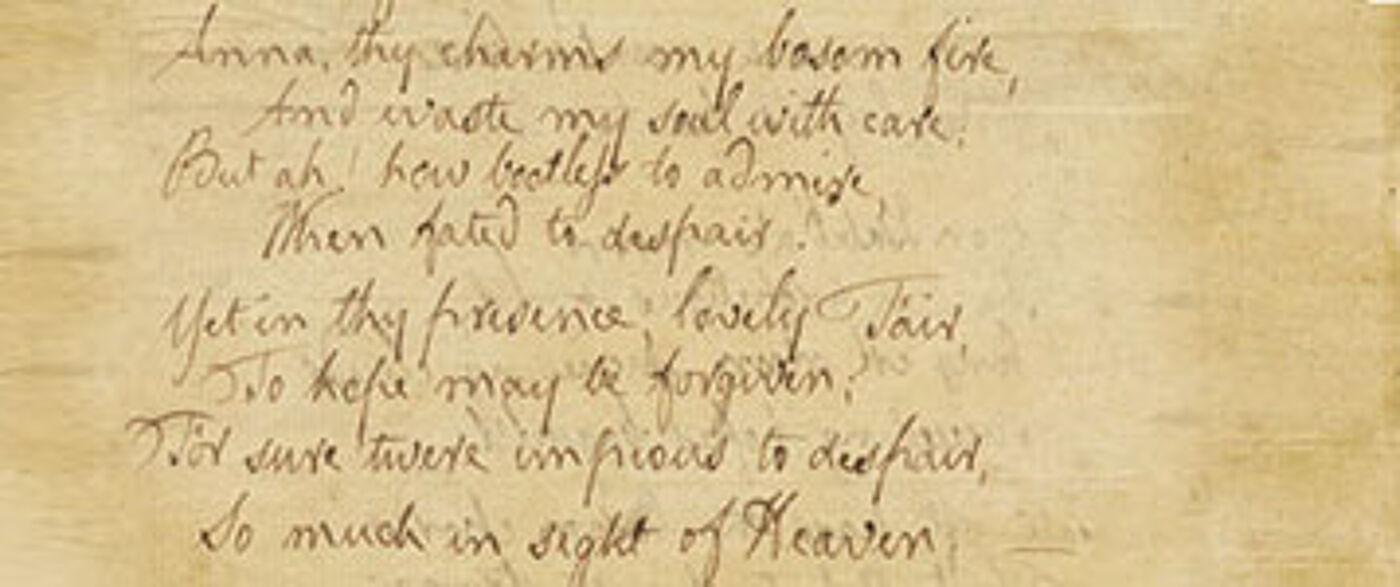 Anna, thy charms my bosom fire,
And waste my soul with care;
But ah! how bootless to admire,
When fated to despair.
Yet in thy presence, lovely Fair,
To hope may be forgiven;
For sure twere impious to despair,
So much in sight of Heaven.